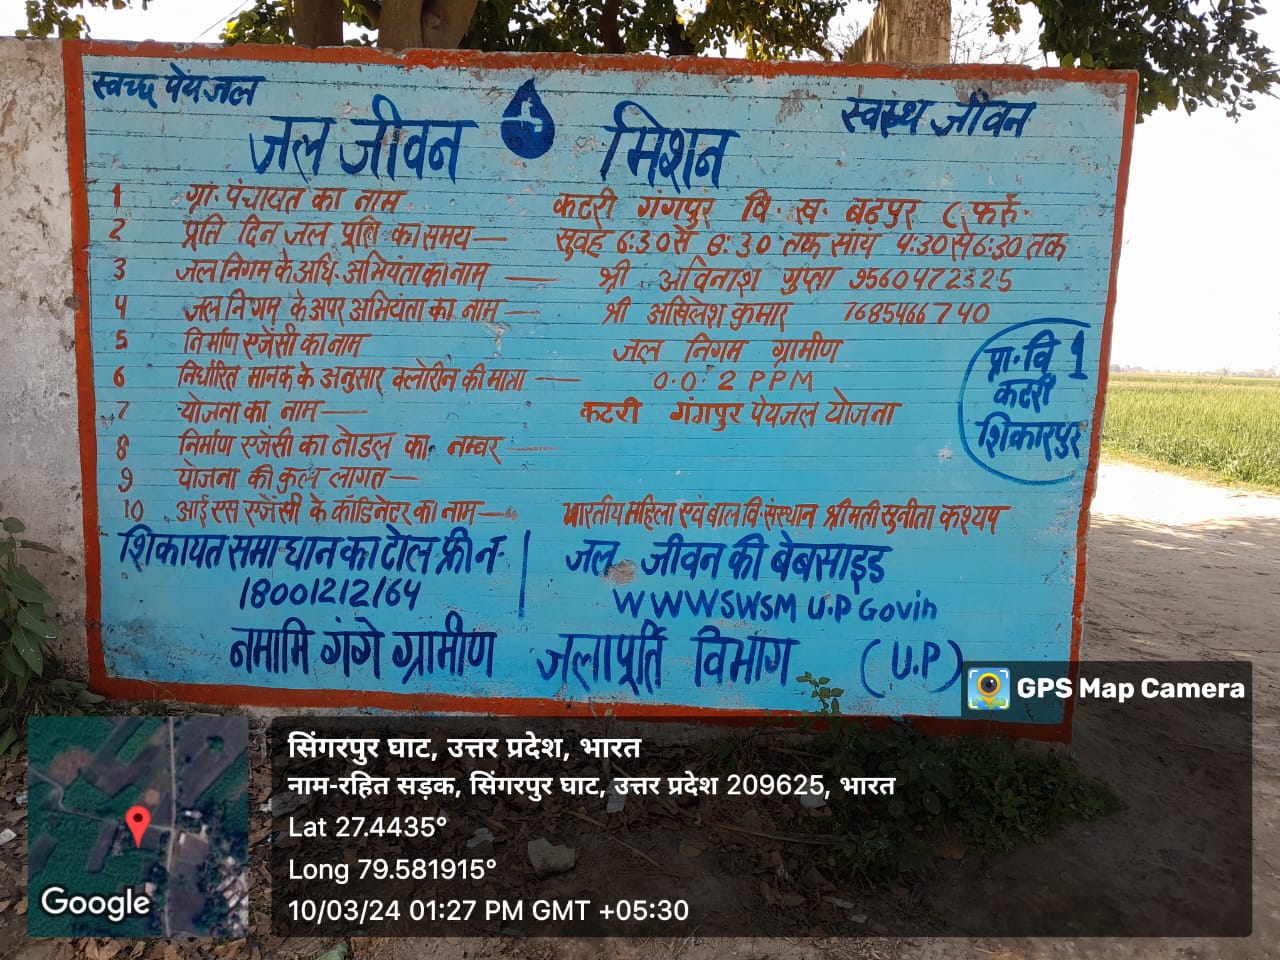 स्वच्छ पेयजल
स्वस्थ जीवन
जल जीवन मिशन
1 ग्रा. पंचायत का नाम कटरी गंगपुर वि. ख. बढ़पुर ( फर्रु.
2 प्रति दिन जल पूर्ति का समय — सुवह 6:30 से 8:30 तक सांय 4:30 से 6:30 तक
3 जल निगम के अधि. अभियंता का नाम — श्री अविनाश गुप्ता 9560472325
4 जल निगम के अपर अभियंता का नाम — श्री अखिलेश कुमार 7685466740
5 निर्माण एजेंसी का नाम जल निगम ग्रामीण
6 निर्धारित मानक के अनुसार क्लोरिन की मात्रा — 0.0.2 PPM
7 योजना का नाम — कटरी गंगपुर पेयजल योजना
8 निर्माण एजेंसी का नोडल का नम्बर —
9 योजना की कुल लागत —
10 आई एस एजेंसी के कॉडिनेटर का नाम — भारतीय महिला एवं बाल वि. संस्थान श्रीमती सुनीता कश्यप
प्रा. वि 1
कटरी
शिकारपुर
शिकायत समाधान का टोल फ्री न.
18001212164
जल जीवन की बेबसाइड
WWWSWSM U.P Govin
नमामि गंगे ग्रामीण जलापूर्ति विभाग (U.P)
GPS Map Camera
सिंगरपुर घाट, उत्तर प्रदेश, भारत
नाम-रहित सड़क, सिंगरपुर घाट, उत्तर प्रदेश 209625, भारत
Lat 27.4435°
Long 79.581915°
10/03/24 01:27 PM GMT +05:30
Google